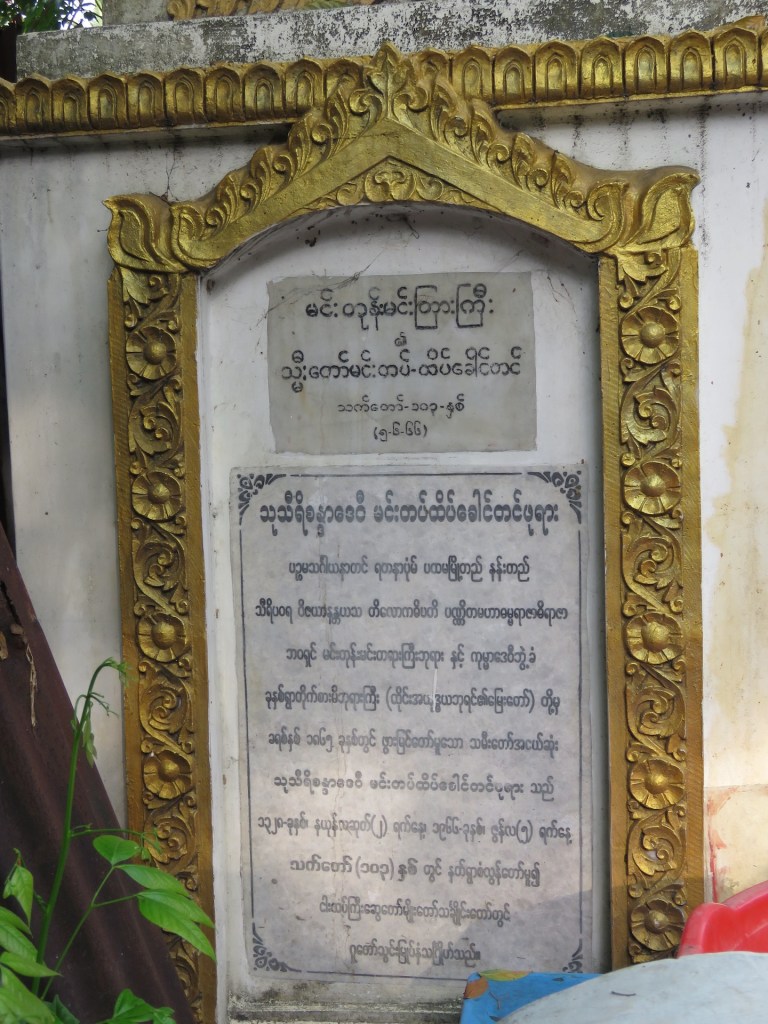 မင်းတုန်းမင်းတြားကြီး
၏
သ္မီးတော်မင်းတပ်-ထိပ်ခေါင်တင်
သက်တော်-၁၀၃-နှစ်
(၅-၆-၆၆)
သုသီရိစန္ဒာဒေဝီ မင်းတပ်ထိပ်ခေါင်တင်ဖုရား
ပဉ္စမသင်္ဂါယနာတင် ရတနာပုံမ် ပထမမြို့တည် နန်းတည်
သီရိပဝရ ဝိဇယာနန္တယသ တိလောကဓိပတိ ပဏ္ဍိတမဟာဓမ္မရာဇာဓိရာဇာ
ဘဝရှင် မင်းတုန်းမင်းတရားကြီးဘုရား နှင့် ကုမ္မာဒေဝီဘွဲ့ခံ
ခုနစ်ရွာတိုက်စားမိဘုရားကြီး (ထိုင်းအယုဒ္ဓယဘုရင်၏မြေးတော်) တို့မှ
ခရစ်နှစ် ၁၈၆၅ ခုနှစ်တွင် ဖွားမြင်တော်မူသော သမီးတော်အငယ်ဆုံး
သုသီရိစန္ဒာဒေဝီ မင်းတပ်ထိပ်ခေါင်တင်ဖုရား သည်
၁၃၂၈-ခုနှစ်၊ နယုန်လဆုတ်(၂) ရက်နေ့၊ ၁၉၆၆-ခုနှစ်၊ ဇွန်လ(၅) ရက်နေ့
သက်တော် (၁၀၃) နှစ် တွင် နတ်ရွာစံလွန်တော်မူ၍
ငါးထပ်ကြီးဆွေတော်မျိုးတော်သင်္ချိုင်းတော်တွင်
ဂူတော်သွင်းမြှုပ်နှံသင်္ဂြိုဟ်သည်။